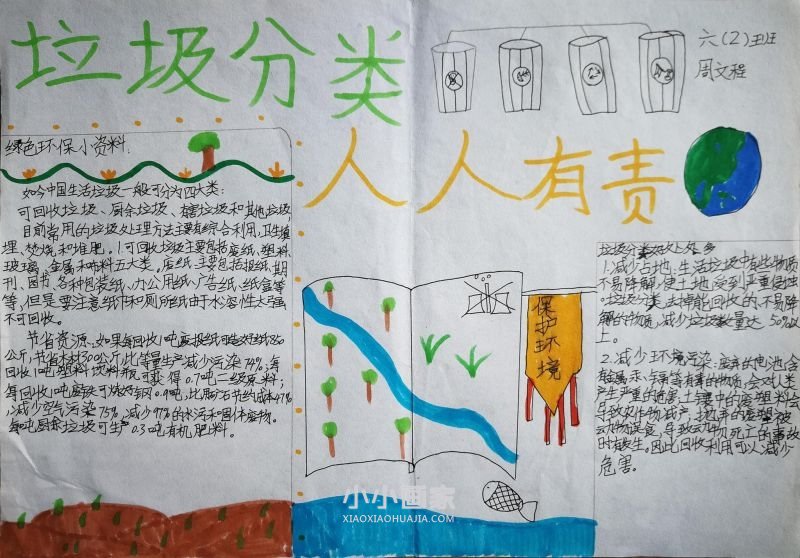 垃圾分类
人人有责
六(2)班
周文程
绿色环保小资料:
如今中国生活垃圾一般可分为四大类:
可回收垃圾、厨余垃圾、有害垃圾和其他垃圾
目前常用的垃圾处理方法主要有综合利用、卫生填
埋、焚烧和堆肥。1.可回收垃圾主要包括废纸、塑料、
玻璃、金属和布料五大类。废纸:主要包括报纸、期
刊、图书、各种包装纸、办公用纸、广告纸、纸盒等
等,但是要注意纸巾和厕所纸由于水溶性太强
不可回收。
节省资源、如果每回收1吨废报纸可造好纸850
公斤,节省木材300公斤,比等量生产减少污染74%;每
回收1吨塑料饮料瓶可获得0.7吨二级原料;
每回收1吨废铁可炼好钢0.9吨,比用矿石节约成本47%
,减少空气污染75%,减少97%的水污和固体废物。
每吨厨余垃圾可生产0.3吨有机肥料。
保护环境
垃圾分类好处多
1.减少占地、生活垃圾中有些物质
不易降解、使土地受到严重侵蚀
。垃圾分类、去掉能回收的、不易降
解的物质,减少垃圾数量达50%以
上。
2.减少环境污染:废弃的电池含
有金属汞、镉等有毒的物质,会对人类
产生严重的危害,土壤中的废塑料会
导致农作物减产,抛弃的废塑被
动物误食,导致动物死亡的事故
时有发生。因此回收利用可以减少
危害。
小小画家
XIAOXIAOHUAJIA.COM